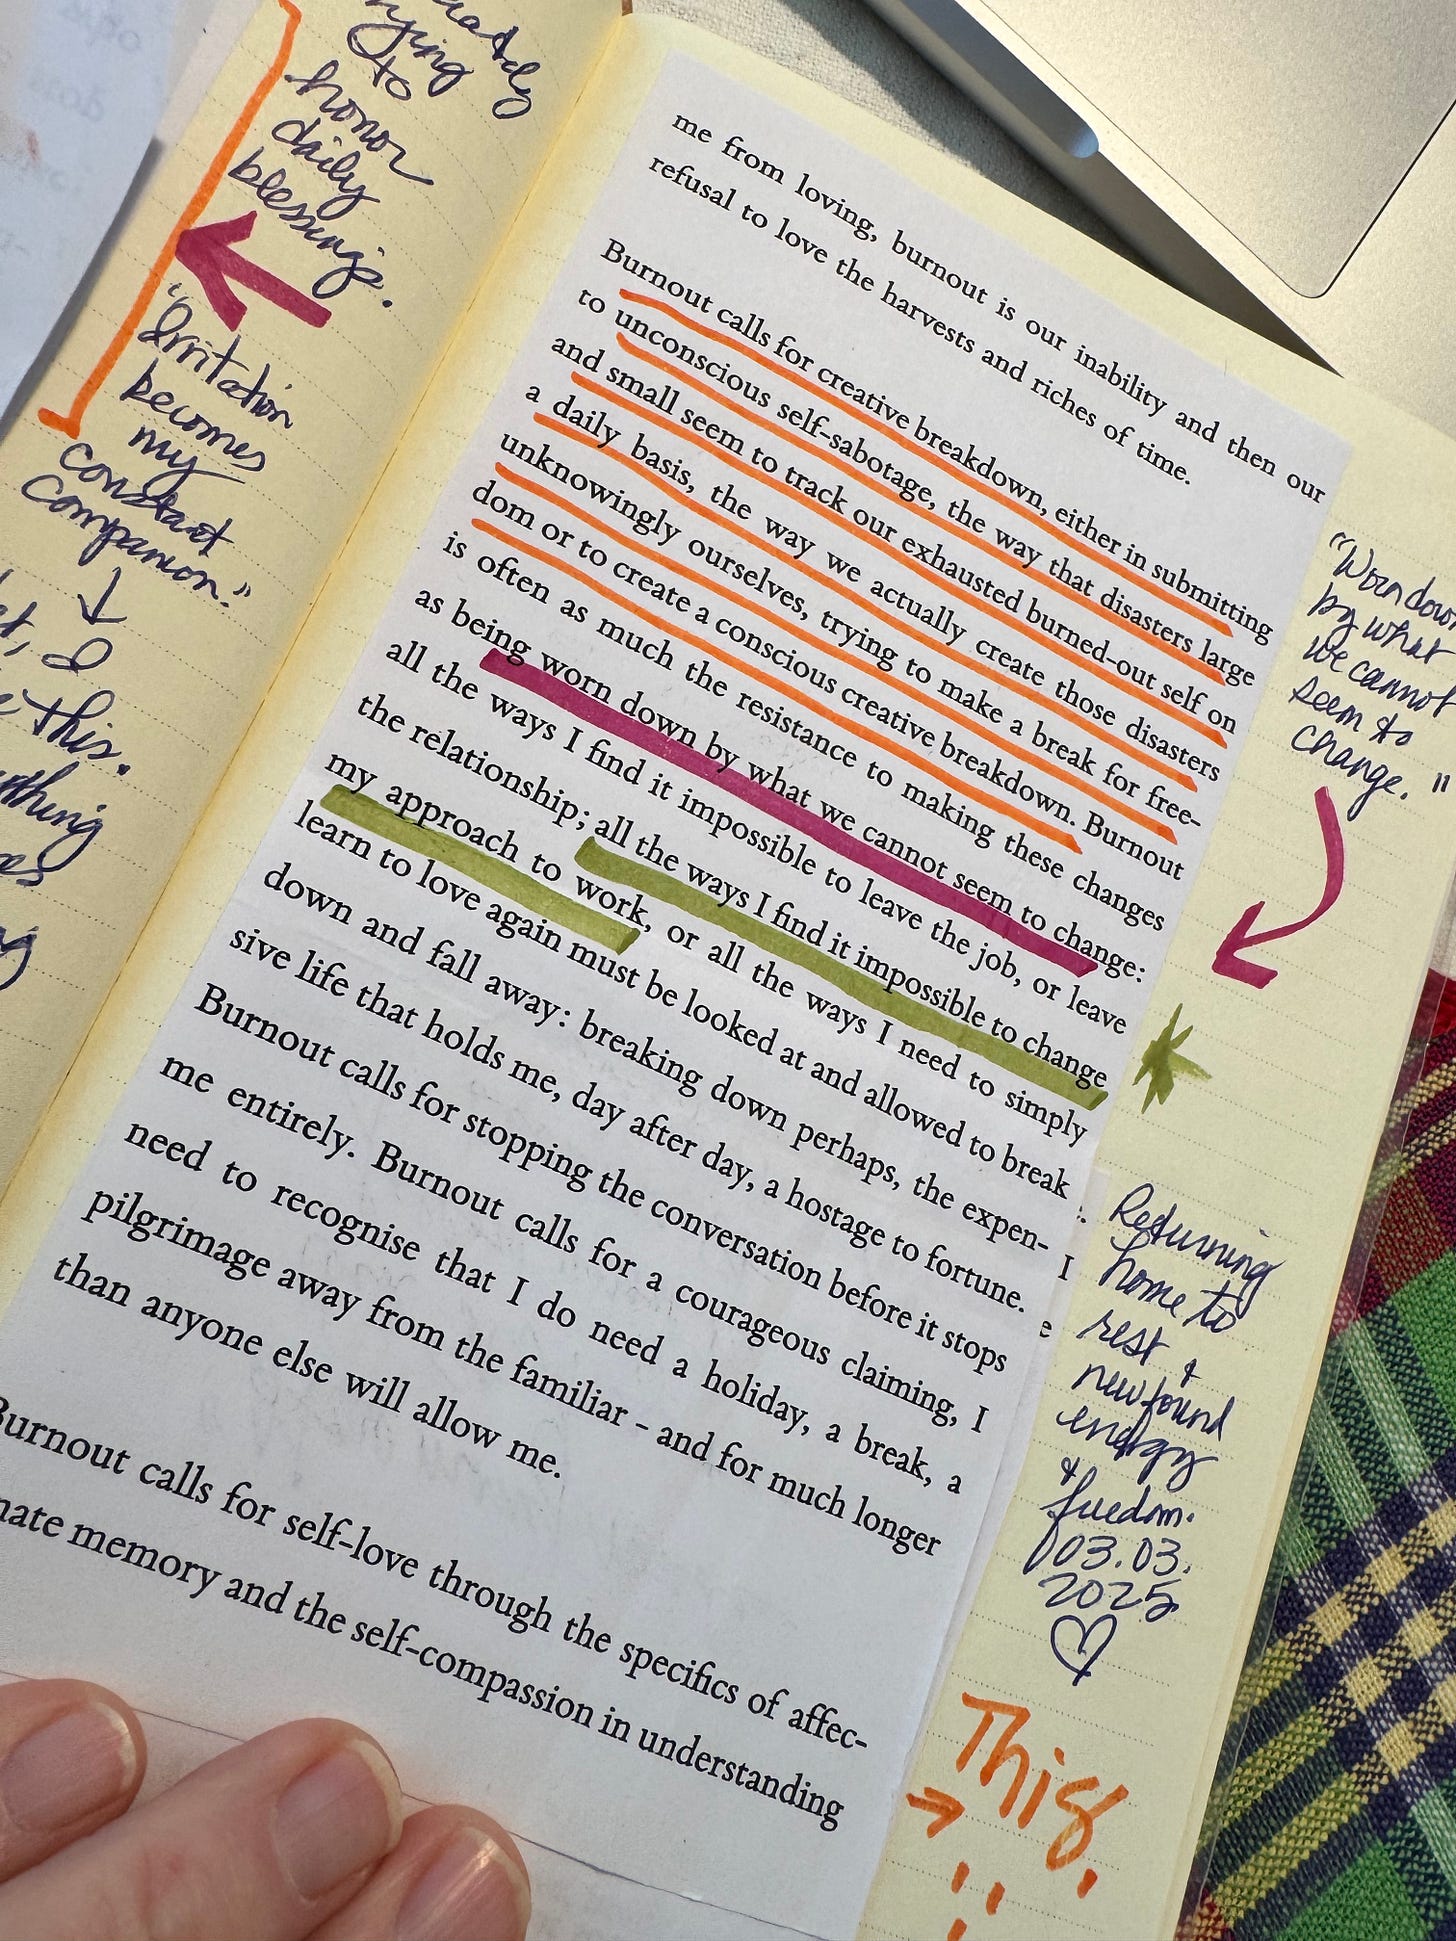 trying
to
honor
daily
blessings.
"Irritation
becomes
my
constant
companion."
I
this.
me from loving, burnout is our inability and then our
refusal to love the harvests and riches of time.
Burnout calls for creative breakdown, either in submitting
to unconscious self-sabotage, the way that disasters large
and small seem to track our exhausted burned-out self on
a daily basis, the way we actually create those disasters
unknowingly ourselves, trying to make a break for free-
dom or to create a conscious creative breakdown. Burnout
is often as much the resistance to making these changes
as being worn down by what we cannot seem to change:
all the ways I find it impossible to leave the job, or leave
the relationship; all the ways I find it impossible to change
my approach to work, or all the ways I need to simply
learn to love again must be looked at and allowed to break
down and fall away: breaking down perhaps, the expen-
sive life that holds me, day after day, a hostage to fortune.
Burnout calls for stopping the conversation before it stops
me entirely. Burnout calls for a courageous claiming, I
need to recognise that I do need a holiday, a break, a
pilgrimage away from the familiar - and for much longer
than anyone else will allow me.
Burnout calls for self-love through the specifics of affec-
nate memory and the self-compassion in understanding
I
e
"Worn down
by what
we cannot
seem to
change."
Returning
home to
rest &
newfound
energy
& freedom.
03.03.
2025
This.